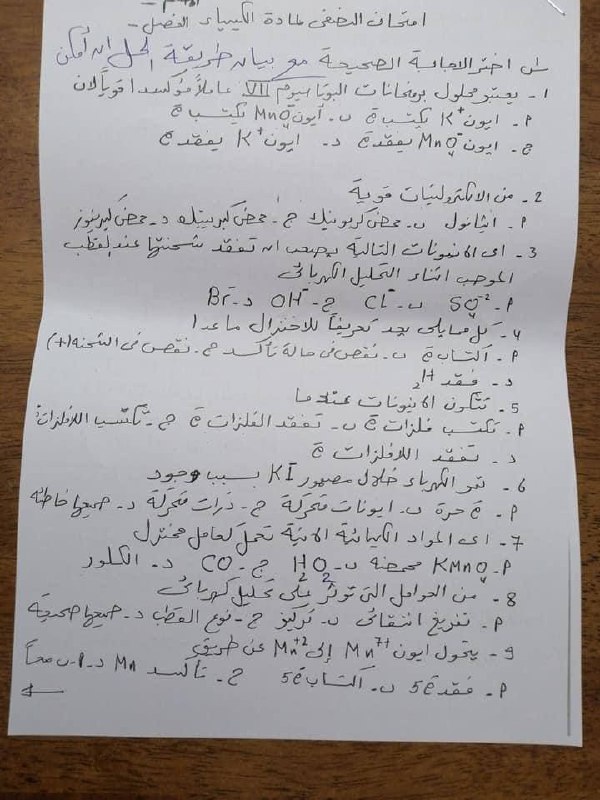 امتحان النصفي لمادة الكيمياء الفصل -
س اختر الاجابة الصحيحة مع بيان طريقة الحل ان أمكن
1- يعتبر محلول برمنجانات البوتاسيوم VII عاملاً مؤكسدا قوياً لان
P. ايون K⁺ يكتسب ē ب. أيون MnO₄⁻ يكتسب ē
ج. ايون MnO₄⁻ يفقد ē د. ايون K⁺ يفقد ē
2- من الالكتروليتات قوية
P. ايثانول ب. حمض كربونيك ج. حمض كبريتيك د. حمض كبريتوز
3- اي الانيونات التالية يصعب ان تفقد شحنتها عند القطب
الموجب اثناء التحليل الكهربائي
P. SO₄⁻² ب. Cl⁻ ج. OH⁻ د. Br⁻
4- كل مما يلي يعد تعريفاً للاختزال ماعدا
P. اكتساب ē ب. نقص في حالة تأكسد ج. نقص في الشحنة (+)
د. فقد H₂
5- تتكون الانيونات عندما
P. تكتسب فلزات ē ب. تفقد الفلزات ē ج. تكتسب اللافلزات ē
د. تفقد اللافلزات ē
6- تمر الكهرباء خلال مصهور KI بسبب وجود
P. ē حرة ب. ايونات متحركة ج. ذرات متحركة د. جميعها خاطئة
7- اي المواد الكيميائية الاتية تعمل كعامل مختزل
P. KMnO₄ محمضة ب. H₂O₂ ج. CO د. الكلور
8- من العوامل التي توثر على تحليل كهربائي
P. تفريغ انتقائي ب. تركيز ج. نوع القطب د. جميعها صحيحة
9- يتحول ايون Mn⁷⁺ إلى Mn⁺² عن طريق
P. فقد 5ē ب. اكتساب 5ē ج. تأكسد Mn د. P-ب معاً